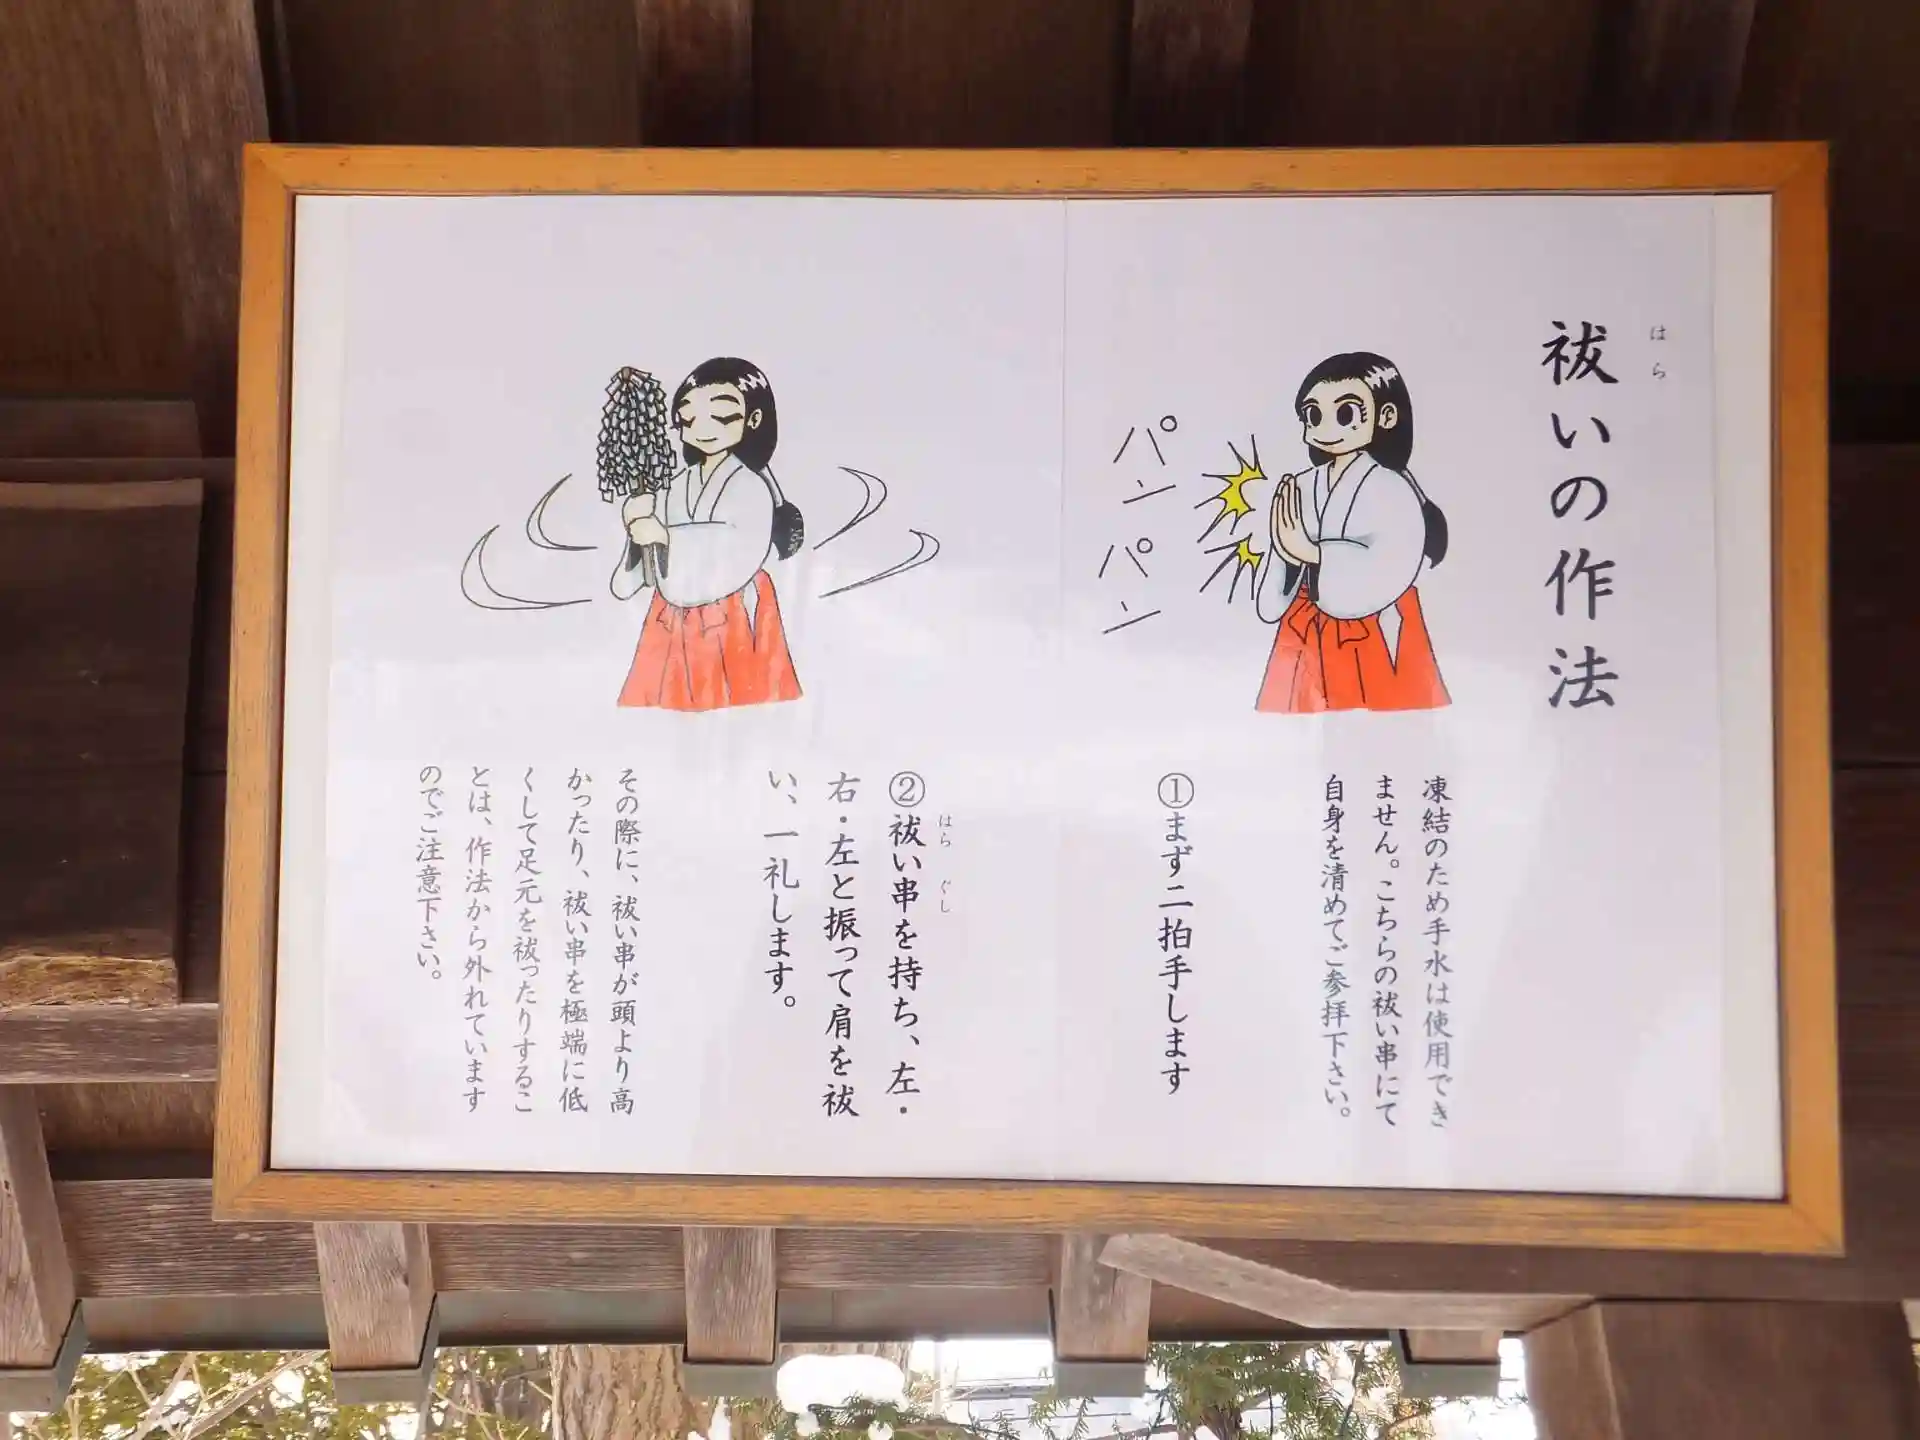 はら
祓いの作法
凍結のため手水は使用でき
ません。こちらの祓い串にて
自身を清めてご参拝下さい。
パンパン
①まず二拍手します
はら ぐし
②祓い串を持ち、左・
右・左と振って肩を祓
い、一礼します。
その際に、祓い串が頭より高
かったり、祓い串を極端に低
くして足元を祓ったりするこ
とは、作法から外れています
のでご注意下さい。